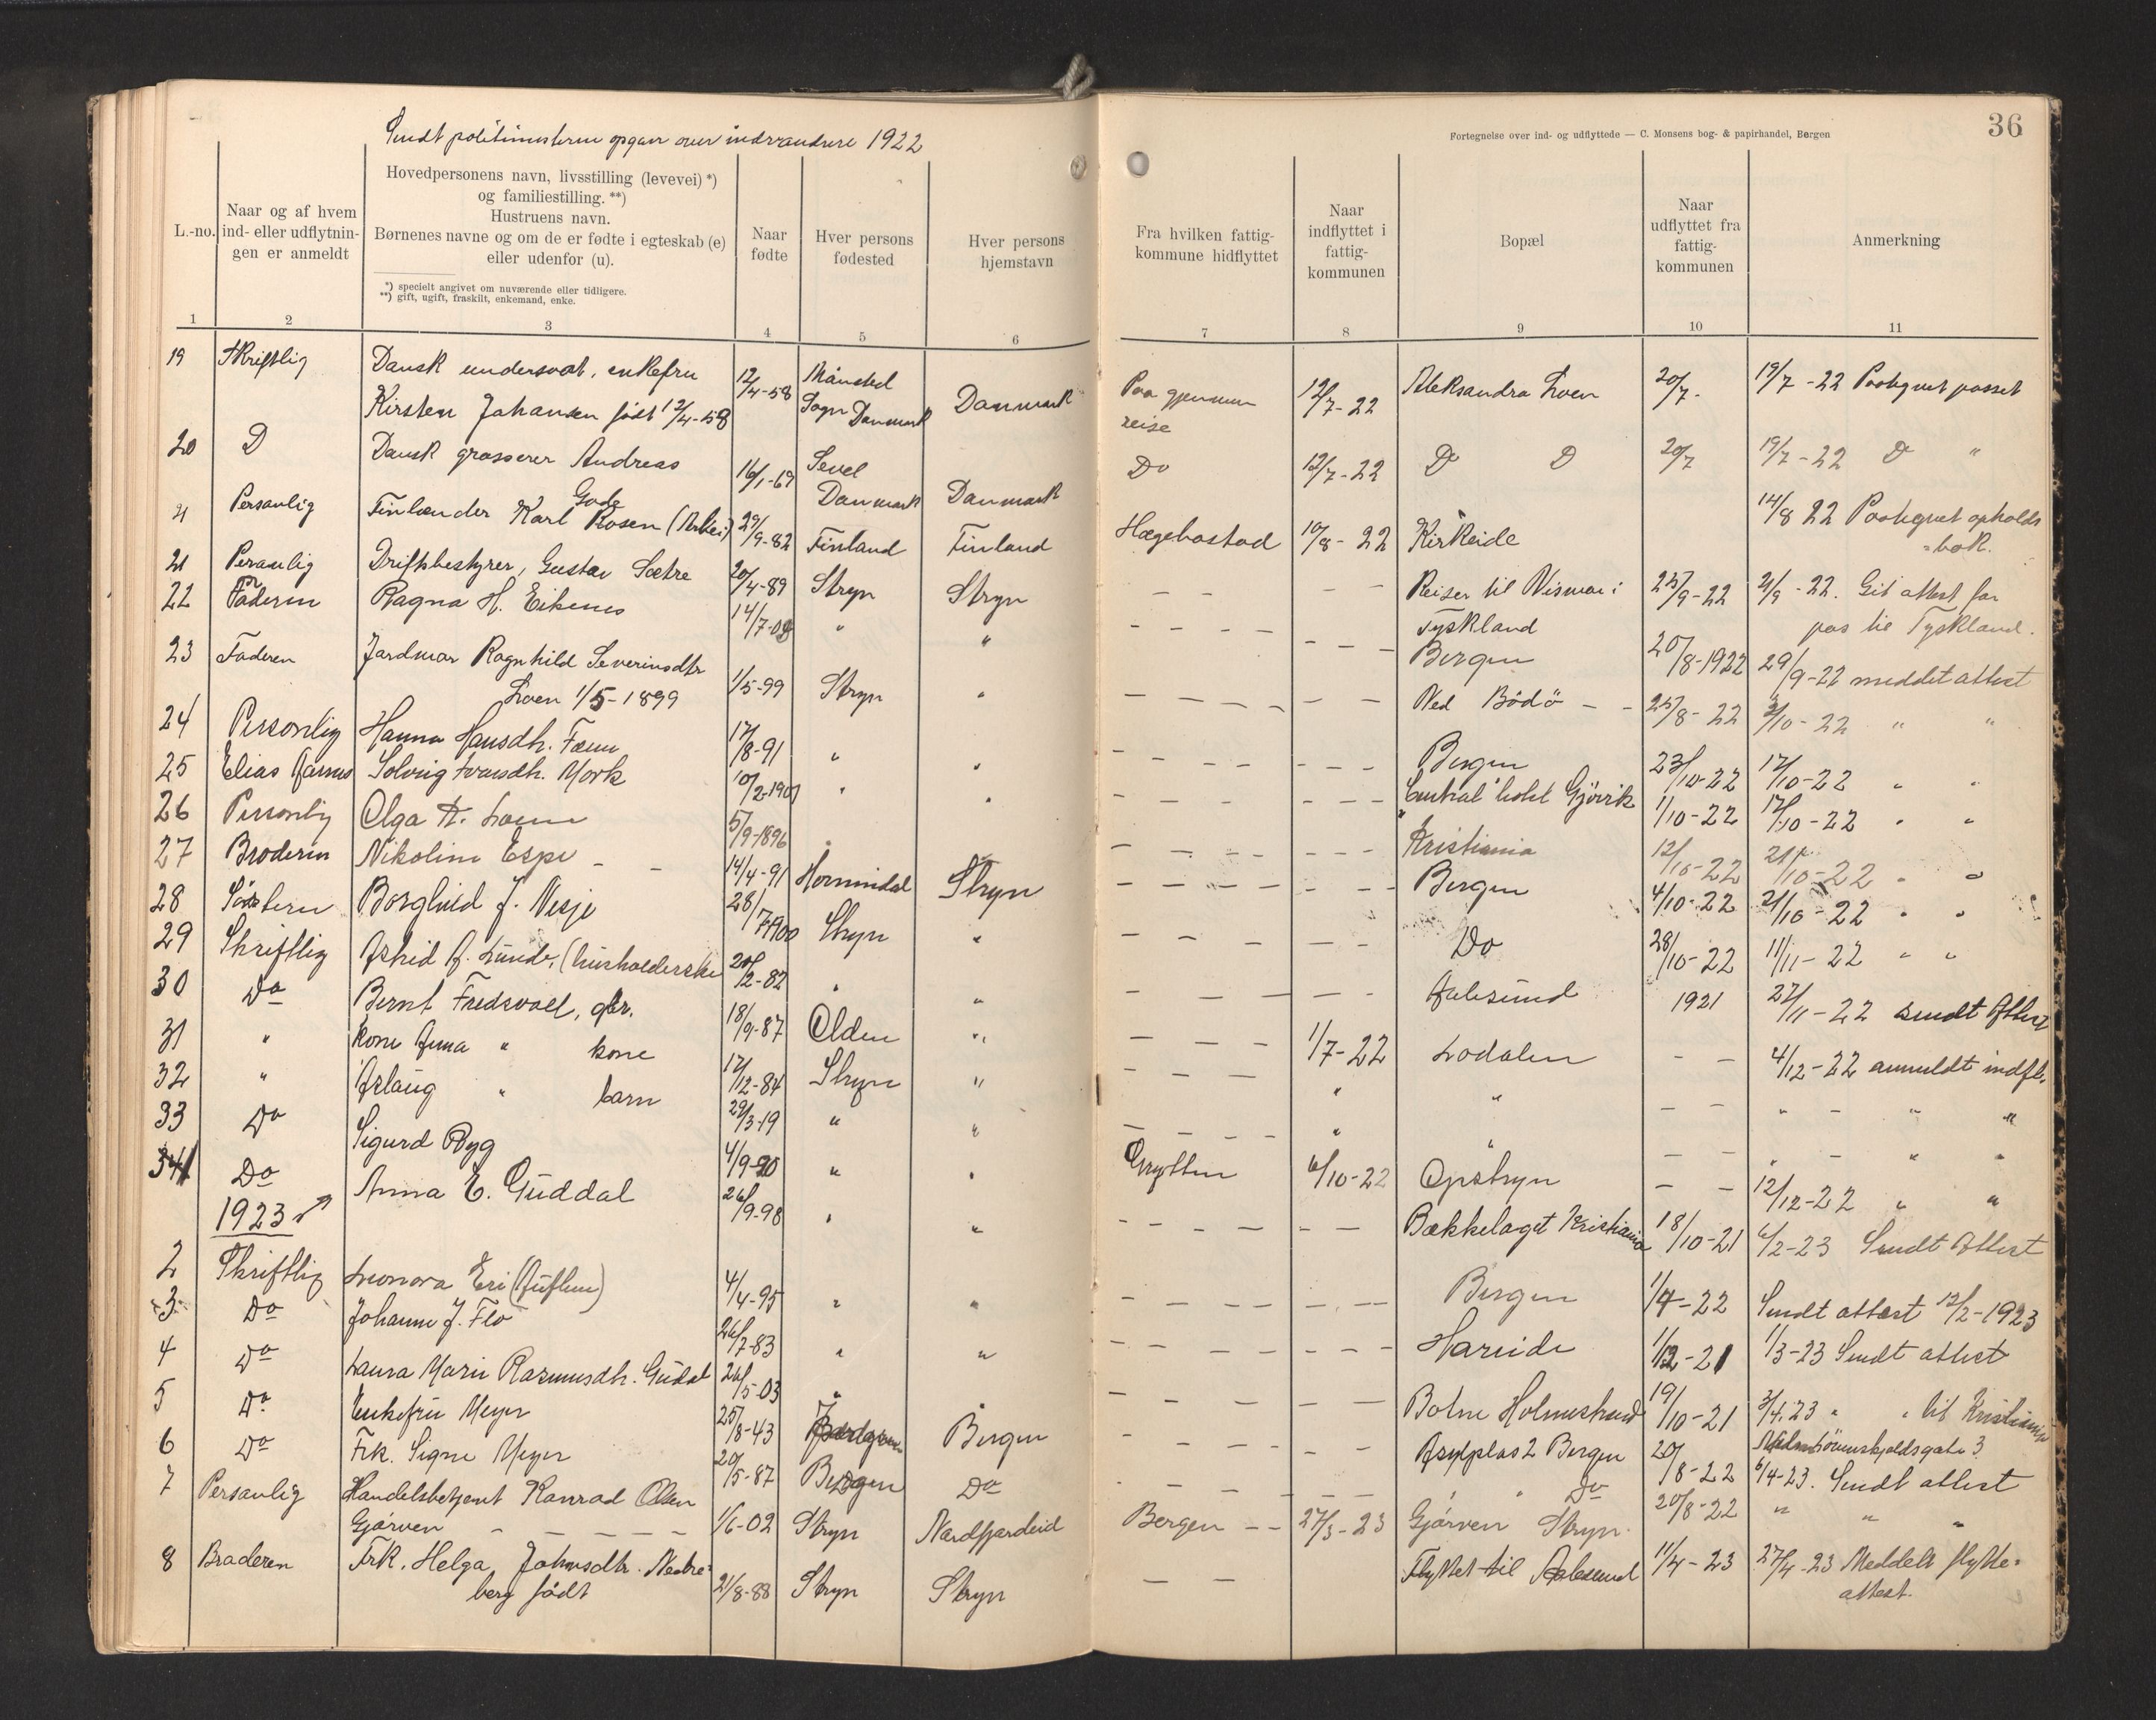 Sendt politimesteren opgave over indvandrere 1922
Fortegnelse over ind- og udflyttede — C. Monsens bog- & papirhandel, Bergen
36
L.-no.
Naar og af hvem
ind- eller udflytnin-
gen er anmeldt
Hovedpersonens navn, livsstilling (levevei) *)
og familiestilling. **)
Hustruens navn.
Børnenes navne og om de er fødte i egteskab (e)
eller udenfor (u).
*) specielt angivet om nuværende eller tidligere.
**) gift, ugift, fraskilt, enkemand, enke.
Naar
fødte
Hver persons
fødested
Hver persons
hjemstavn
Fra hvilken fattig-
kommune hidflyttet
Naar
indflyttet i
fattig-
kommunen
Bopæl
Naar
udflyttet fra
fattig-
kommunen
Anmerkning
1 2 3 4 5 6 7 8 9 10 11
19 Skriftlig Dansk undersaat, enkefru 12/4-58 Mønsted Paa gjennem 12/7-22 Aleksandra Loen 20/7- 19/7-22 Paategnet passet
Kirsten Johansen født 12/4-58 Sogn Danmark Danmark reise
20 D Dansk grosserer Andreas 16/1-67 Sevel Do 12/7-22 D D 20/7 19/7-22 D "
Gade Danmark Danmark
21 Personlig Finlænder Karl Rosen (Arbei) 29/9-82 Finland Finland Hægebostad 10/8-22 Kirkeide 14/8 22 Paategnet opholds
-bok.
21 Personlig Driftsbestyrer, Gustav Sætre 20/4-89 Stryn Stryn — — — — Reiser til Wismar i 25/9-22 21/9-22. Git attest for
Tyskland pas til Tyskland.
22 Faderen Ragna H. Eikenes 14/7-03 " " — — — — — — — Bergen 20/8-1922 29/9-22 meddelt attest
23 Faderen Jardmar Ragnhild Severinsdtr 1/5-99 Stryn " — — — — — — Ved Bödö — — 25/8-22 3/10-22 " "
Loen 1/5-1899
24 Personlig Hanna Hansdtr. Fænn 17/8-91 " " — — — — — — — Bergen 23/10-22 12/10-22 " "
25 Elias Aarnes Solveig Ivarsdtr. Mork 10/2-1901 " " — — — — — — — "Central" hotel Gjövik 1/10-22 17/10-22 " "
26 Personlig Olga A. Loen 5/9-1896 " — — — — — — — Kristiania 12/10-22 21/10-22 " "
27 Broderen Nikoline Espe — — 14/4-91 Hornindal Stryn — — — — — — — Bergen 4/10-22 21/10-22 " "
28 Søstern Borghild J. Vesje 28/7-1900 Stryn " — — — — — — — Do 28/10-22 11/11-22 " "
29 Skriftlig Astrid A. Lunde, (husholderske 20/12-82 " " — — — — — — Aalesund 1921 27/11-22 sendt Attest
30 Do Bernt Fredsvoll, gbr. 18/9-87 Olden " — — — 1/7-22 Lodalen — — 4/12-22 anmeldt indfl.
31 " kone Anna " kone 17/12-84 Stryn " — — — " " — — " — " "
32 " Aslaug " barn 29/3-19 " " — — — — " " — — " — " "
33 Do Sigurd Ryg 4/9-90 " " Grytten 6/10-22 Opstryn — — 12/12-22 " "
34 Do Anna E. Guddal 26/9-98 " " — — — — — — Bækkelaget Kristiania 18/10-21 6/2-23 Sendt Attest
1923
2 Skriftlig Leonora Eri (Auflem) 4/4-95 " " — — — — — — — Bergen 1/4-22 Sendt attest 12/2-1923
3 Do Johanne J. Flo 26/7-83 " " — — — — — — — Hareide 1/12-21 1/3-23 Sendt attest
4 Do Laura Marie Rasmusdtr. Gudal 26/5-03 " " — — — — — — Botne Holmestrand 19/10-21 3/4.23 " " til Kristiania
5 Do Enkefru Meyer 25/8-43 Bergen — — — — — — Asylplas 2 Bergen 20/8-22 6/4-23. Sendt attest
6 Do Frk. Signe Meyer 20/5-87 Bergen Do — — — — — — " " Do 20/8-22 " " "
7 Personlig Handelsbetjent Konrad Olsen
Gjørven — — — — — 1/6-02 Stryn Nordfjordeid Bergen — — 27/3-23 Gjørven Stryn.
8 Broderen Frk. Helga Johnsdtr. Nedre-
berg født 21/8-88 Stryn Stryn — — Flyttet til Aalesund 11/4-23 27/4-23 Meddelt flytte-
attest.